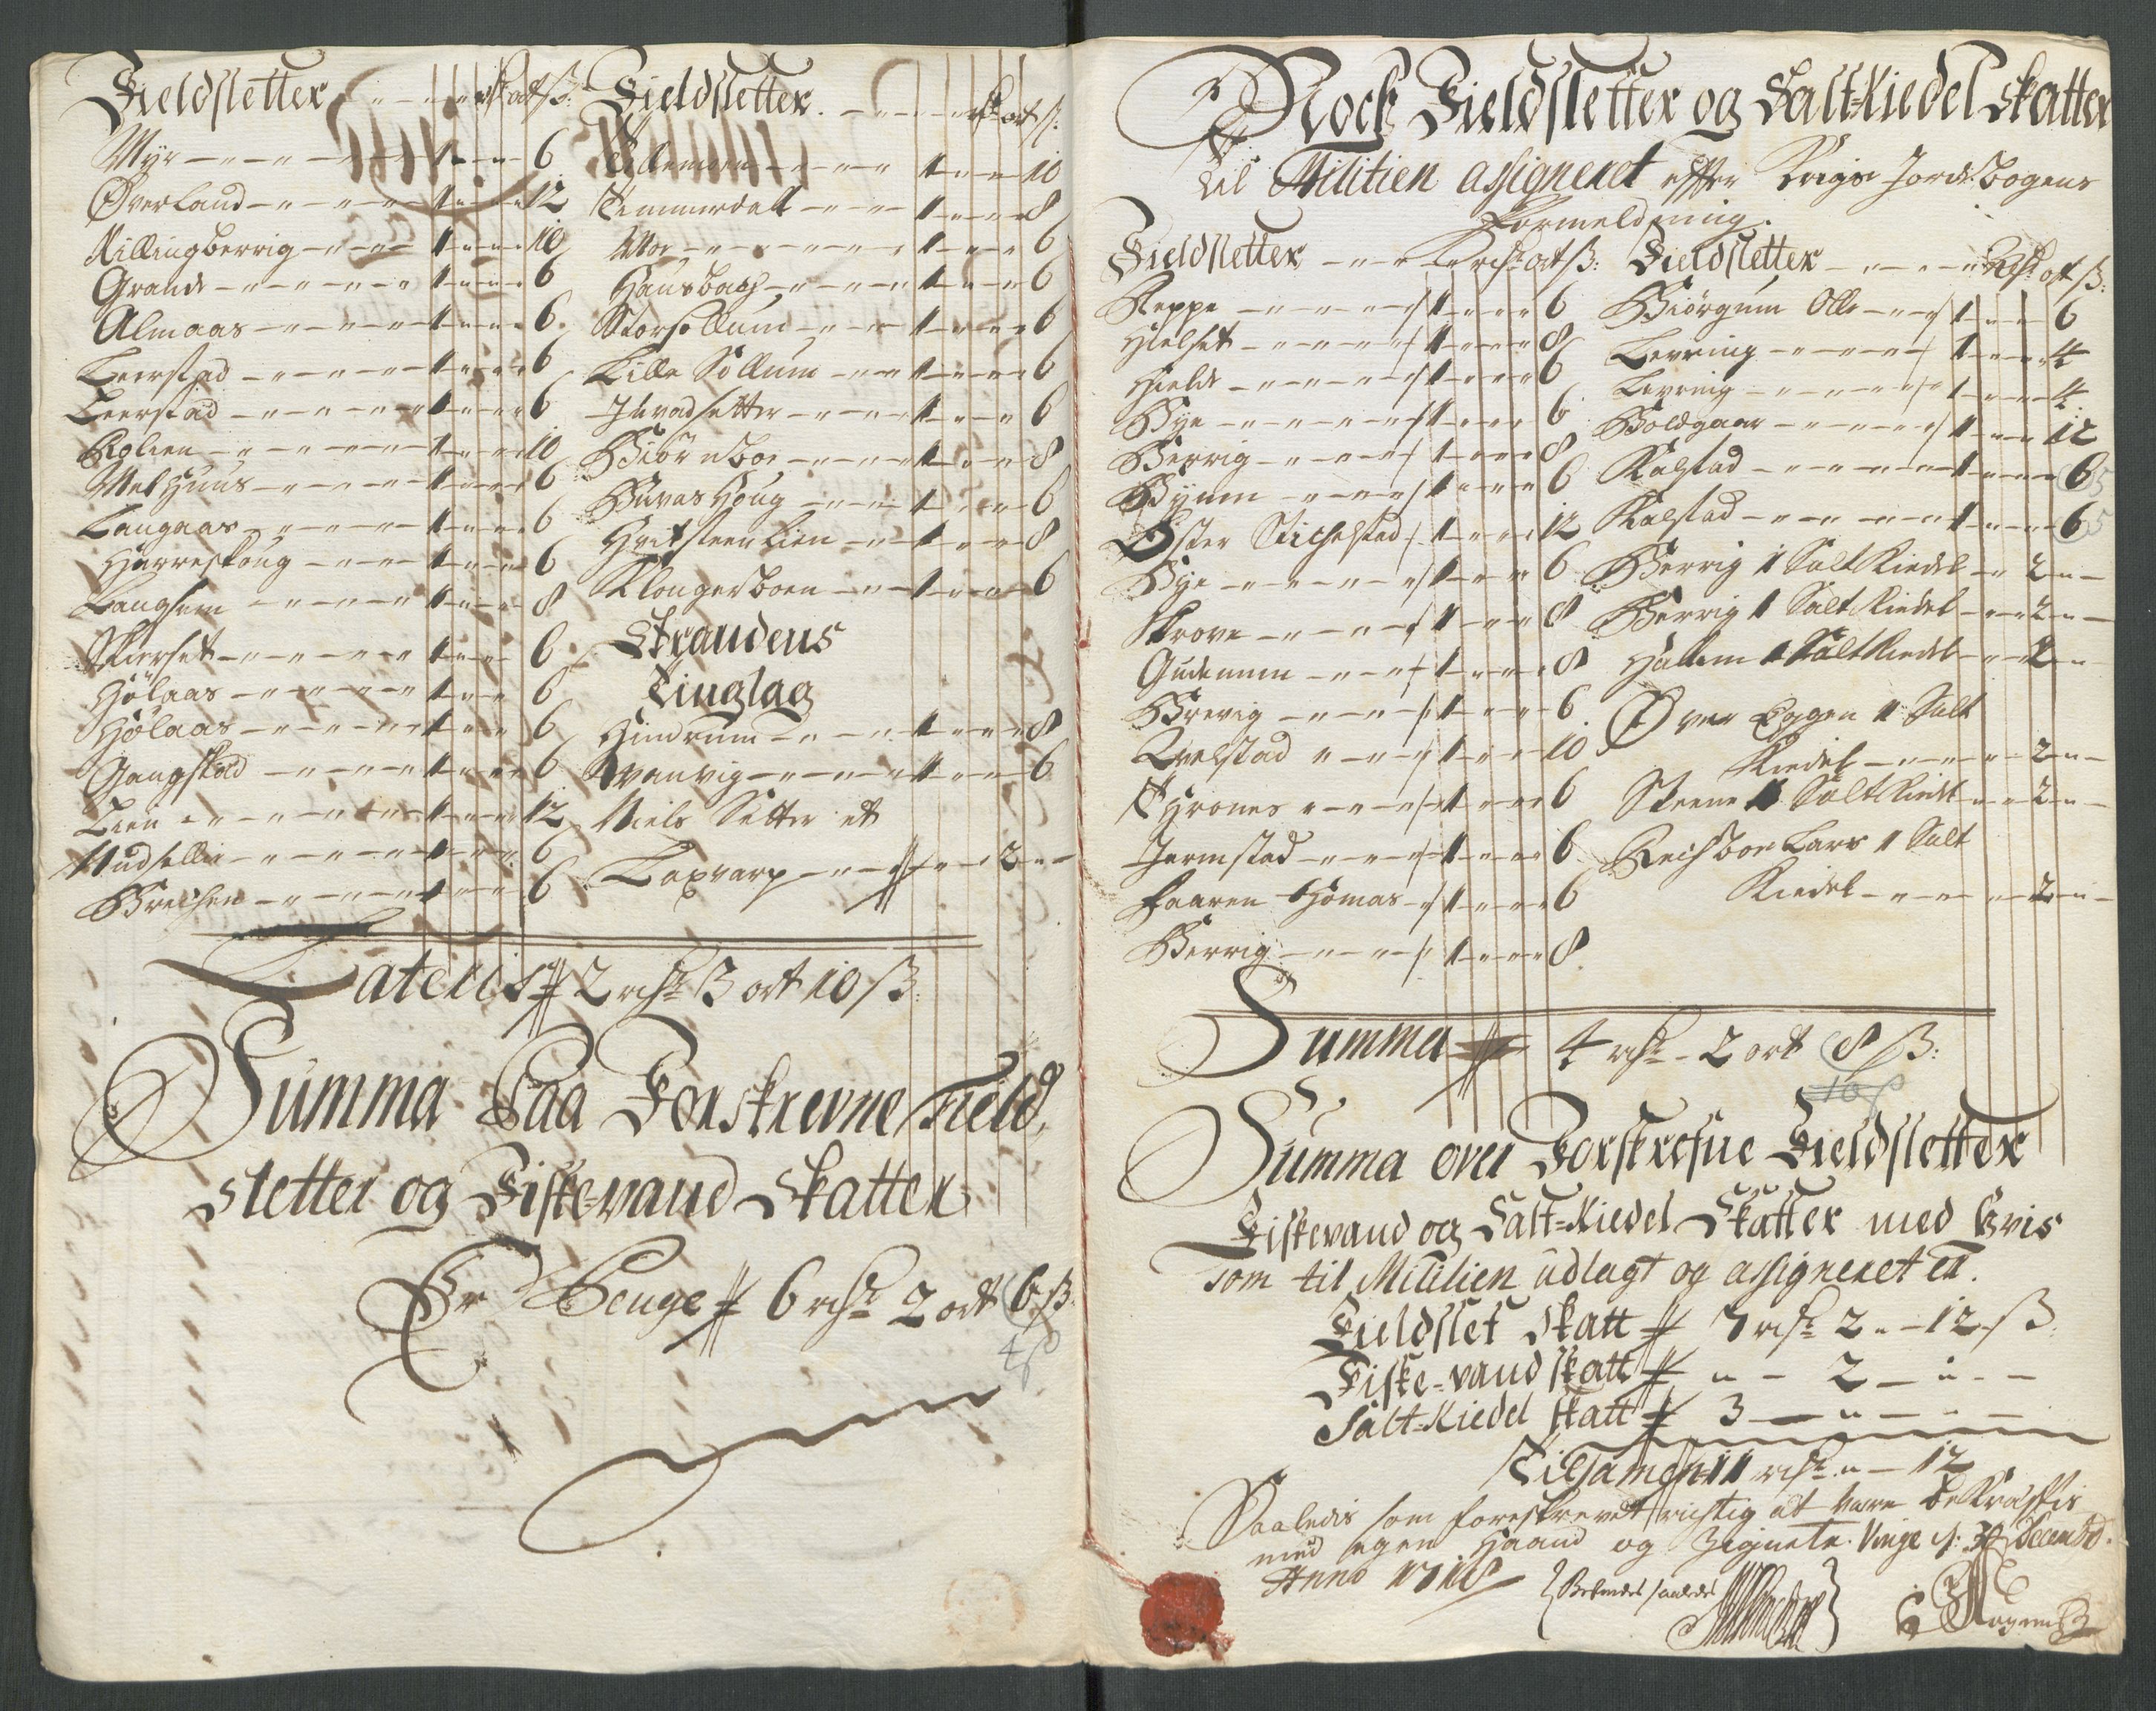 Fieldsletter rdr ort ß:
Myr 1 6
Øverland 1 12
Killingberrig 1 10
Grande 1 6
Almaas 1 6
Leerstad 1 6
Leerstad 1 6
Rolien 1 10
Melhuus 1 6
Langaas 1 6
Harreskoug 1 6
Langhem 1 8
Skierset 1 6
Hølaas 1 6
Hølaas 1 6
Gangstad 1 6
Lien 1 12
Mudsellie 1 6
Brechen 1 6
Fieldsletter rdr ort ß:
1 10
Temmerdal 1 8
Moe 1 6
Hausbach 1 6
Storsøllum 1 6
Lille Søllum 1 6
Juvadsetter 1 6
Biörnboe 1 8
Buvashoug 1 6
Hvitsteenlien 1 8
Klongerboen 1 6
Strandens
Tinglag
Hindrum 1 8
Kvanvig 1 6
Niels Setter et
Laxvarp 2
Lateris 2 rdr 3 ort 10 ß:
Summa Paa Forskrevne Field
sletter og Fiskevand Skatter
Er Penge 6 rdr 2 ort 6 ß
4 ß
Nock Fieldsletter og Salt-Kiedel Skatter
til Militien assigneret efter Krigs Jordebogens
Formeldning.
Fieldsletter rdr ort ß:
Reppe 1 6
Hielset 1 8
Hielde 1 6
Bye 1 6
Berrig 1 8
Bynem 1 6
Øster Stichelstad 1 12
Bye 1 6
Skrove 1 8
Gudemun 1 8
Brevig 1 6
Qvelstad 1 10
Thrones 1 6
Jermstad 1 6
Faaren Thomas 1 6
Berrig 1 8
Fieldsletter rdr ort ß:
Biörgum Olle 1 6
Levring 1 4
Levring 1 4
Boldgaar 1 12
Kalstad 1 6 5
Kalstad 1 6 5
Berrig 1 Salt Kiedel 2
Berrig 1 Salt Kiedel 2
Hallem 1 Salt Kiedel 2
Over Eggen 1 Salt
Kiedel 2
Steene 1 Salt Kiedel 2
Reichboe Lars 1 Salt
Kiedel 2
Summa 4 rdr 2 ort 8 ß:
10 ß
Summa over Forskrefne Fieldsletter
Fiskevand og Salt-Kiedel Skatter med hvis
som til Militien udlagt og assigneret er.
Fieldslet Skatt 7 rdr 2 12 ß
Fiske-vand skatt 2
Salt-Kiedel skatt 3
Tilsamen 11 rdr 12
Saaledis som foreskrevet rigtig at være bekräftis
med egen Haand og Zignete. Vinge d: 31 Decembr.
Anno 1718
Befindes saaledes